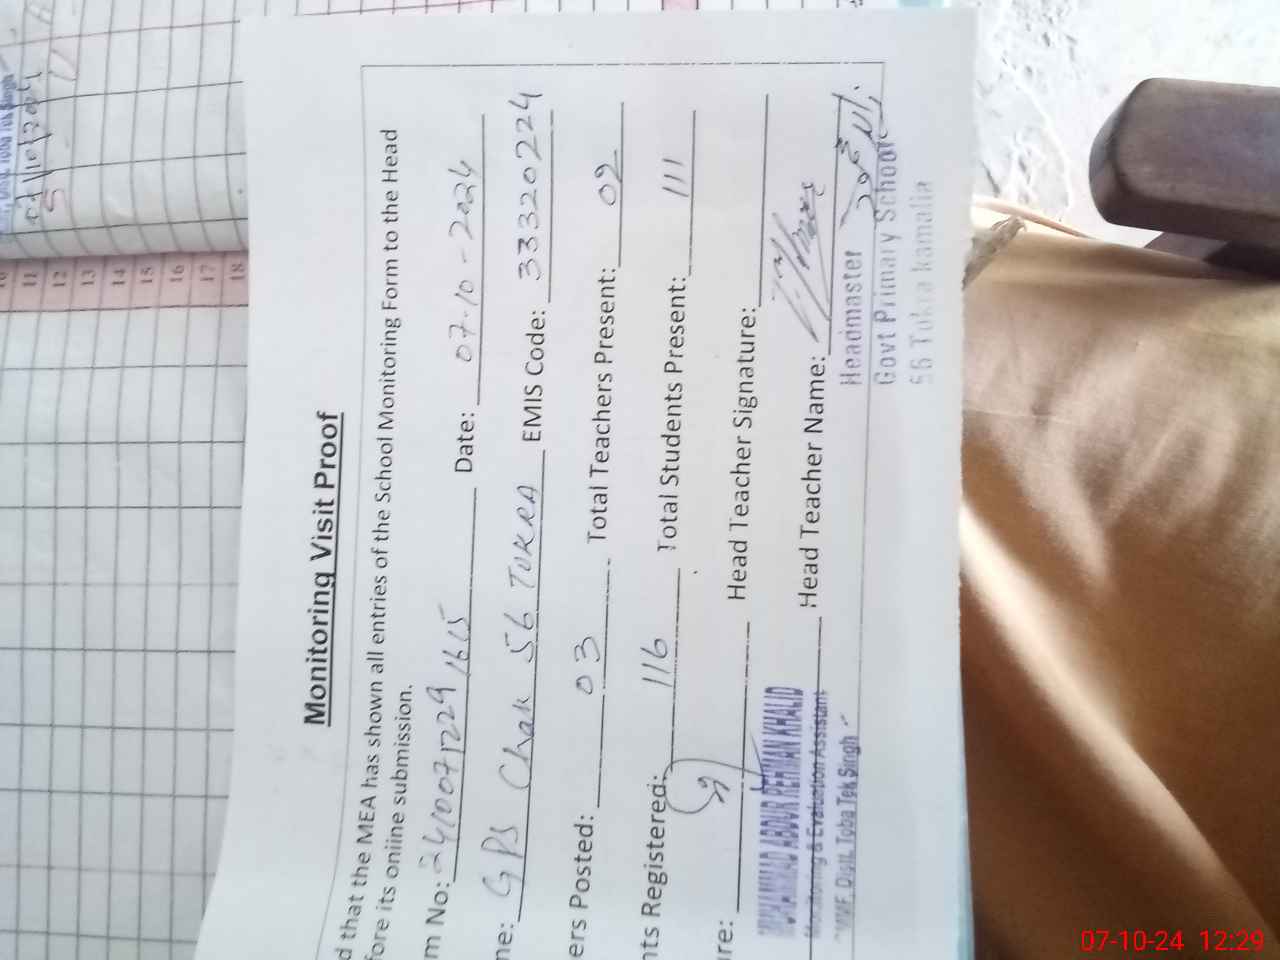 Monitoring Visit Proof
d that the MEA has shown all entries of the School Monitoring Form to the Head
fore its online submission.
m No: 24100712291615 Date: 07-10-2024
ne: GPS Chak 56 TUKRA EMIS Code: 33320224
ers Posted: 03 Total Teachers Present: 02
nts Registered: 116 Total Students Present: 111
ure: Head Teacher Signature:
Head Teacher Name:
MUHAMMAD ABDUR REHMAN KHALID
Monitoring & Evaluation Assistant
Distt. Toba Tek Singh
Headmaster
Govt Primary School
56 Tukra kamalia
Distt. Toba Tek Singh
11
12
13
14
15
16
17
18
07-10-24 12:29